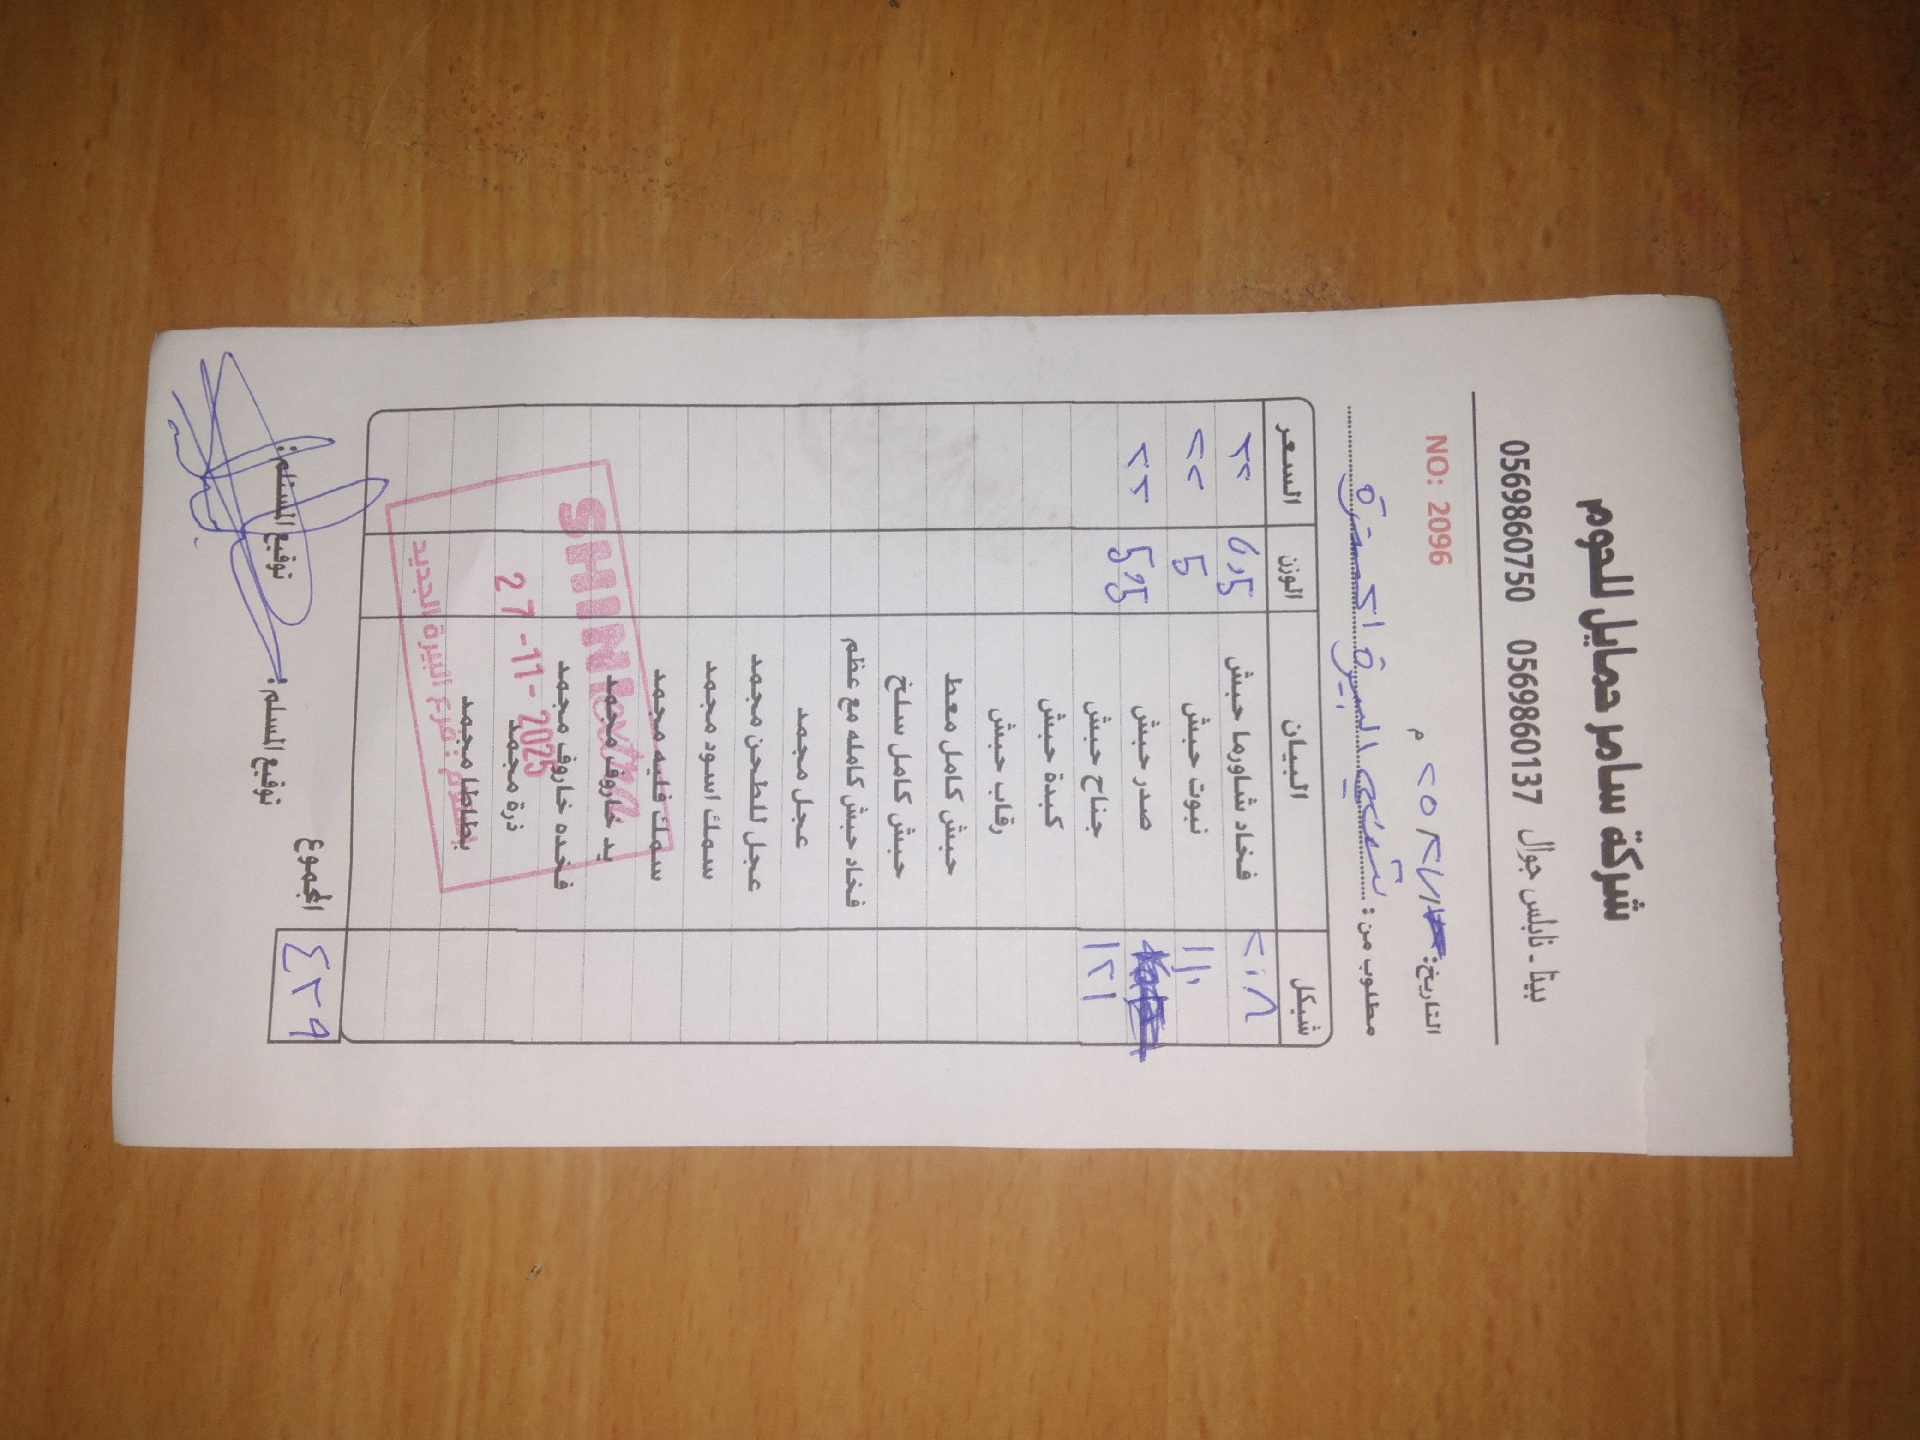 شركة سامر حمايل للحوم
بيتا - نابلس جوال 0569860137 0569860750
NO: 2096
التاريخ: م
مطلوب من: البيرة
شيكل البيان الوزن السعر
٢٠٨ فخاد شاورما حبش 6,5 ٣٢
١١٠ نبوت حبش 5 ٢٢
صدر حبش 5,5 ٢٢
١٢١ جناح حبش
كبدة حبش
رقاب حبش
حبش كامل معط
حبش كامل سلخ
فخاد حبش كامله مع عظم
عجل مجمد
عجل للطحن مجمد
سمك اسود مجمد
سمك فليه مجمد
يد خاروف مجمد
فخده خاروف مجمد
ذرة مجمد
بطاطا مجمد
SHINI extra
27-11-2025
فرع البيرة الجديد
المجموع ٤٣٩
توقيع المسلم: توقيع المستلم: